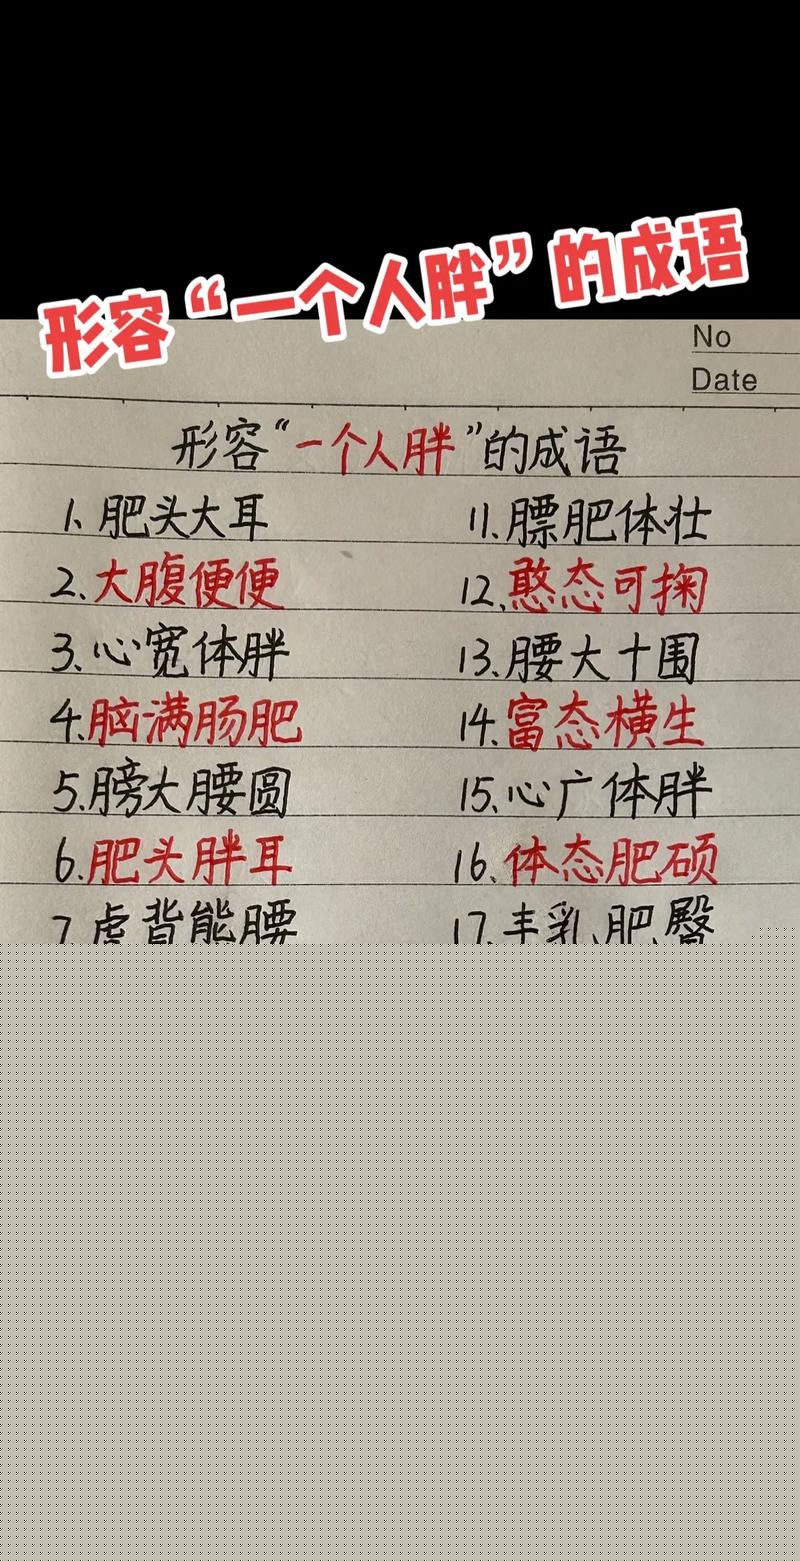 形容“一个人胖”的成语
No
Date
形容“一个人胖”的成语
1、肥头大耳 11、膘肥体壮
2、大腹便便 12、憨态可掬
3、心宽体胖 13、腰大十围
4、脑满肠肥 14、富态横生
5、膀大腰圆 15、心广体胖
6、肥头胖耳 16、体态肥硕
7、虎背能腰 17、丰乳肥臀